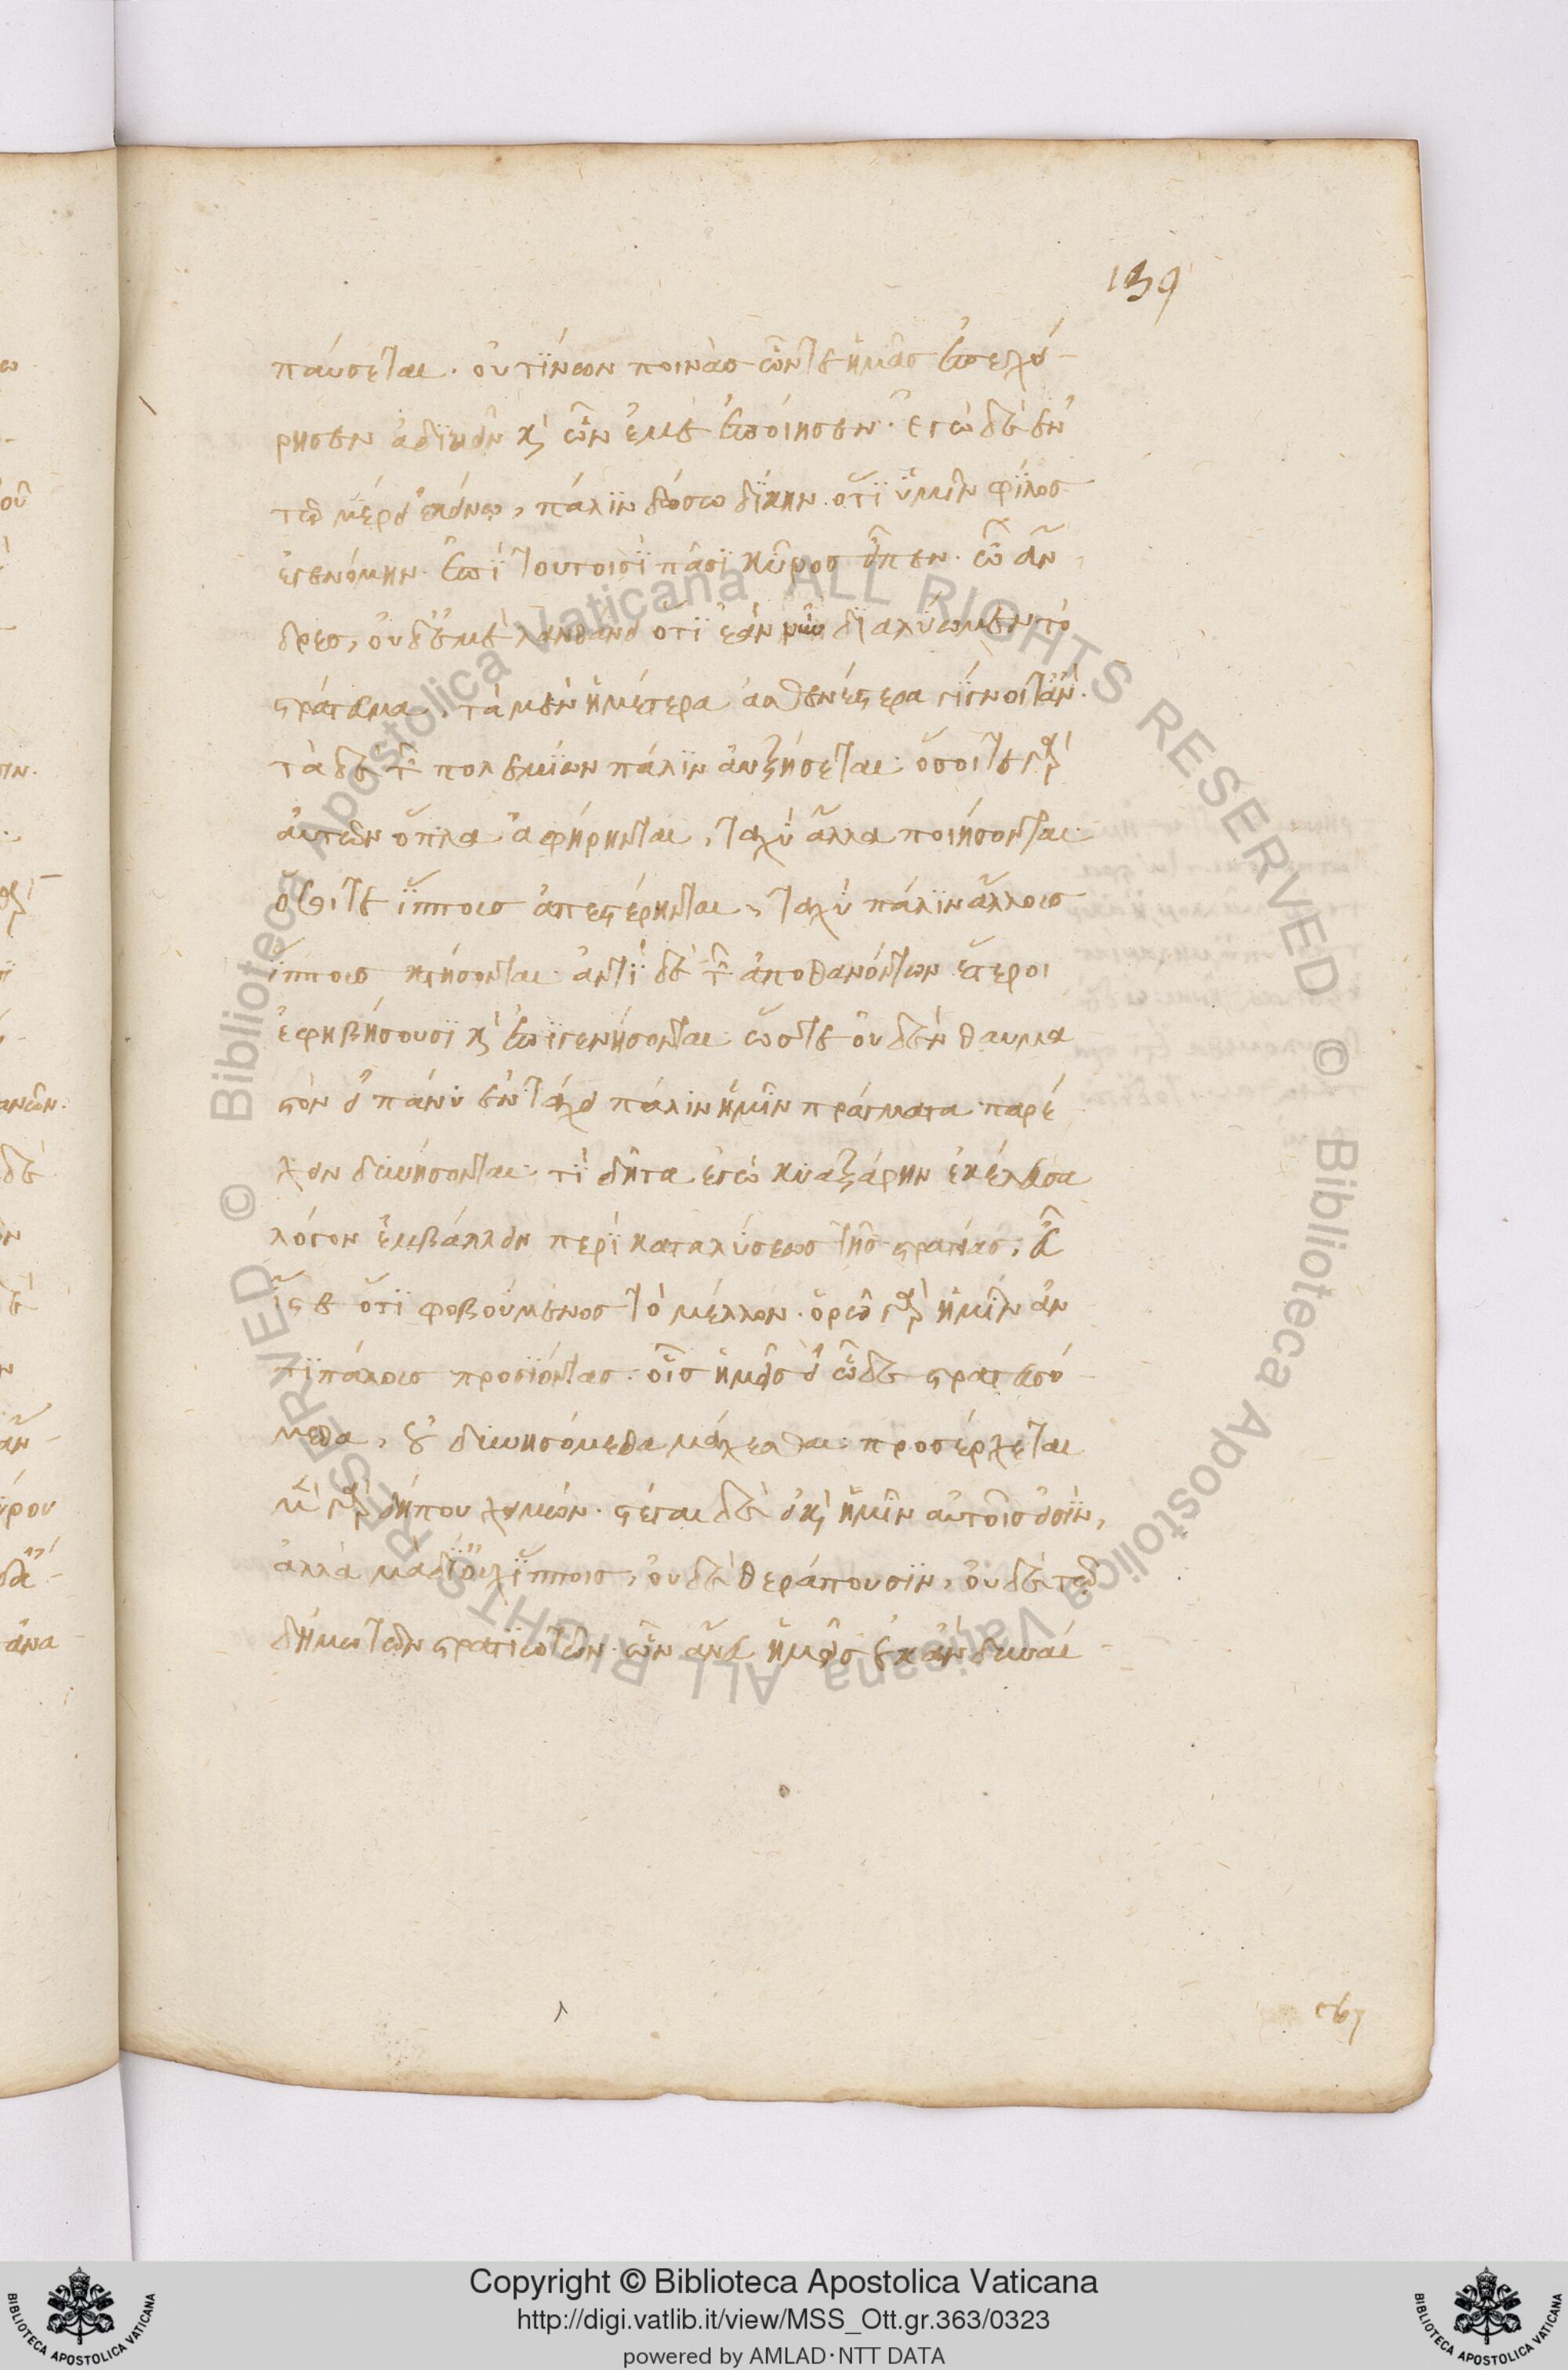 139
παύσεται. οὐ τίνων ποινὰς ὧν τε ἡμᾶς ἐπεχεί-
ρησεν ἀδικεῖν κ̀ ὧν ἐμὲ ἐποίησεν. ἐγὼ δὲ ἐν
τῷ μέρει ἐκείνῳ, πάλιν δώσω δίκην. ὅτι ὑμῖν φίλος
ἐγενόμην. ἐπὶ τούτοισι πᾶσι κῦρος εἶπεν. ὦ ἄν-
δρες, οὐδ' ἐμὲ λανθάνει ὅτι ἐὰν μὲν διαλύωμεν τὸ
στράτευμα, τὰ μὲν ἡμέτερα ἀσθενέστερα γίγνοιτ' ἄν.
τὰ δὲ τῶν πολεμίων πάλιν αὐξήσεται. ὅσοι τε γὰρ
αὐτῶν ὅπλα ἀφήρηνται, ταχὺ ἄλλα ποιήσονται.
ὅσοι τε ἵπποις ἀπεστέρηνται, ταχὺ πάλιν ἄλλοις
ἵπποις κτήσονται. ἀντὶ δὲ τῶν ἀποθανόντων ἕτεροι
ἐφηβήσουσι κ̀ ἐπιγενήσονται. ὥστε οὐδὲν θαυμα
στὸν εἰ πάνυ ἐν τάχει πάλιν ἡμῖν πράγματα παρέ
χειν δυνήσονται. τί δῆτα ἐγὼ κυαξάρην ἐκέλευσα
λόγον ἐμβάλλειν περὶ καταλύσεως τῆς στρατιᾶς; εὖ
ἴστε ὅτι φοβούμενος τὸ μέλλον. ὁρῶ γὰρ ἡμῖν ἀν
τιπάλοις προσιόντας. οἷς ἡμεῖς εἰ ὧδε στρατευσό-
μεθα, οὐ δυνησόμεθα μάχεσθαι. προσέρχεται
μὲν γὰρ δήπου χειμών. στέγαι δὲ εἰ κ̀ ἡμῖν αὐτοῖς εἰσὶν,
ἀλλὰ μὰ δί' οὐχ ἵπποις, οὐδὲ θεράπουσιν, οὐδὲ τῷ
δήμῳ τῶν στρατιωτῶν. ὧν ἄνευ ἡμεῖς οὐκ ἂν δυναί-